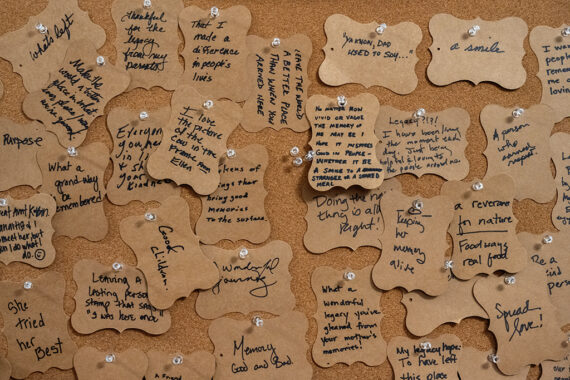 What's left
Thankful
for the
legacy
from my
parents
That I
made a
difference
in people's
lives
LEAVE THE WORLD
A BETTER PLACE
THAN WHEN YOU
ARRIVED HERE
"YA KNOW, DAD
USED TO SAY..."
a smile
I wa
people
remem
me a
loving
Make the
world a
better
place
NO MATTER HOW
VIVID OR VAGUE
THE MEMORY OF
ME MAY BE I
HOPE IT INSPIRES
GOOD IN PEOPLE -
WHETHER IT BE
A SMILE TO A
STRANGER OR A SHARED
MEAL
Legacy?!?!
I have been living
in the moment each
day. Just being
helpful & loving to
the people around me.
A person
who
I love
the picture
of the
Cow in the
Prairie
Ellen
Every
you
in
Kind
Purpose
What a
grand way to be
remembered
of
things that
bring good
memories
to the
surface.
Doing the
thing is all
Right!
Keeping
her
memory
alive
a reverence
for nature
Food ways
real food
Good
children
Wonderful
journey
Leaving a
lasting
stamp that says
"I was here once"
She
tried
her
Best
What a
wonderful
legacy you've
gleaned from
your mother's
memories!
Be a
kind
person
Spread
love!
Memory
Good and Bad
My legacy hope:
To have left
this place